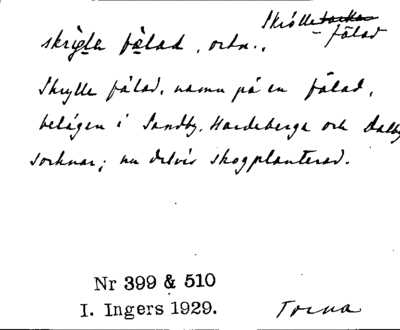 Skrölle backa
- fälad
skrỳlla fälad, ortn.,
Skrylle fälad, namn på en fälad,
belägen i Sandby, Hardeberga och Dalby
socknar; nu delvis skogplanterad.
Nr 399 & 510
I. Ingers 1929.
Torna